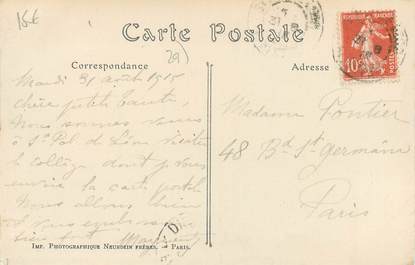 15€
Carte Postale
29)
Correspondance
Adresse
REPUBLIQUE FRANCAISE
10c
POSTES
Mardi 31 août 1915
chère petite tante,
Nous sommes venus
à St Pol de Léon visiter
le collège dont je vous
envoie la carte postale
Nous allons bien
bien
Madame Pontier
48 Bd St Germain
Paris
IMP. PHOTOGRAPHIQUE NEURDEIN FRÈRES. - PARIS.